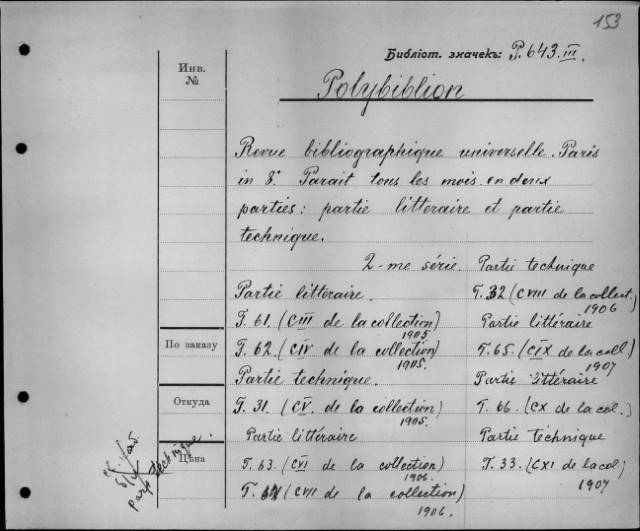 153
Библіот. значекъ: P. 643. III.
Инв.
№
Polybiblion
Revue bibliographique universelle. Paris
in 8°. Parait tous les mois en deux
parties: partie litteraire et partie
technique.
2-me série.
Partie littéraire.
T. 61. (CIII de la collection)
1905.
T. 62. (CIV de la collection)
1905.
Partie technique.
T. 31. (CV. de la collection)
1905.
Partie littéraire
T. 63. (CVI de la collection)
1906.
T. 64 (CVII de la collection)
1906.
Partie technique
T. 32 (CVIII de la collect.)
1906
Partie littéraire
T. 65. (CIX de la coll)
1907
Partie littéraire
T. 66. (CX de la col.)
Partie technique
T. 33. (CXI de la col)
1907
По заказу
Откуда
Цѣна
part technique.